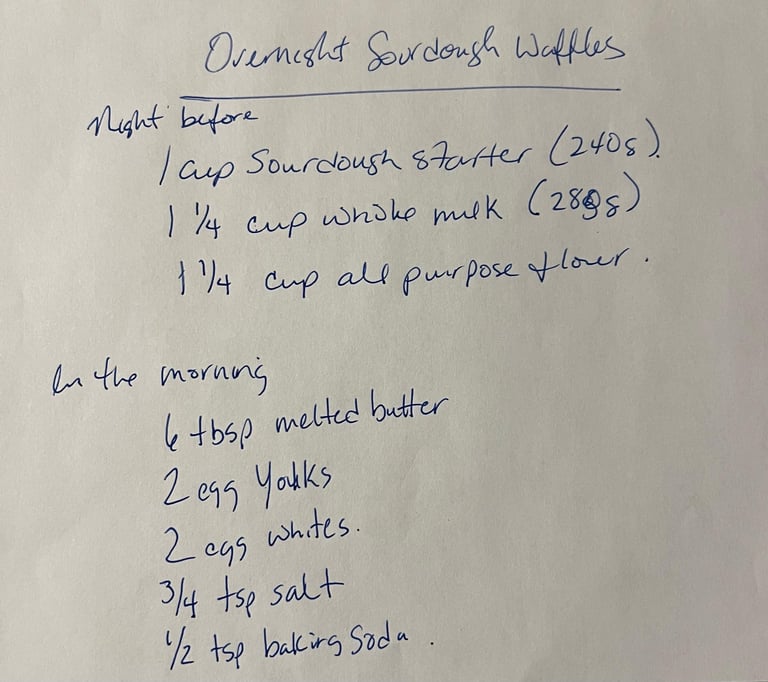 Overnight Sourdough Waffles
Night before
1 cup Sourdough starter (240g).
1 1/4 cup whole milk (280g)
1 1/4 cup all purpose flour.
In the morning
6 tbsp melted butter
2 egg Yolks
2 egg whites.
3/4 tsp salt
1/2 tsp baking Soda.